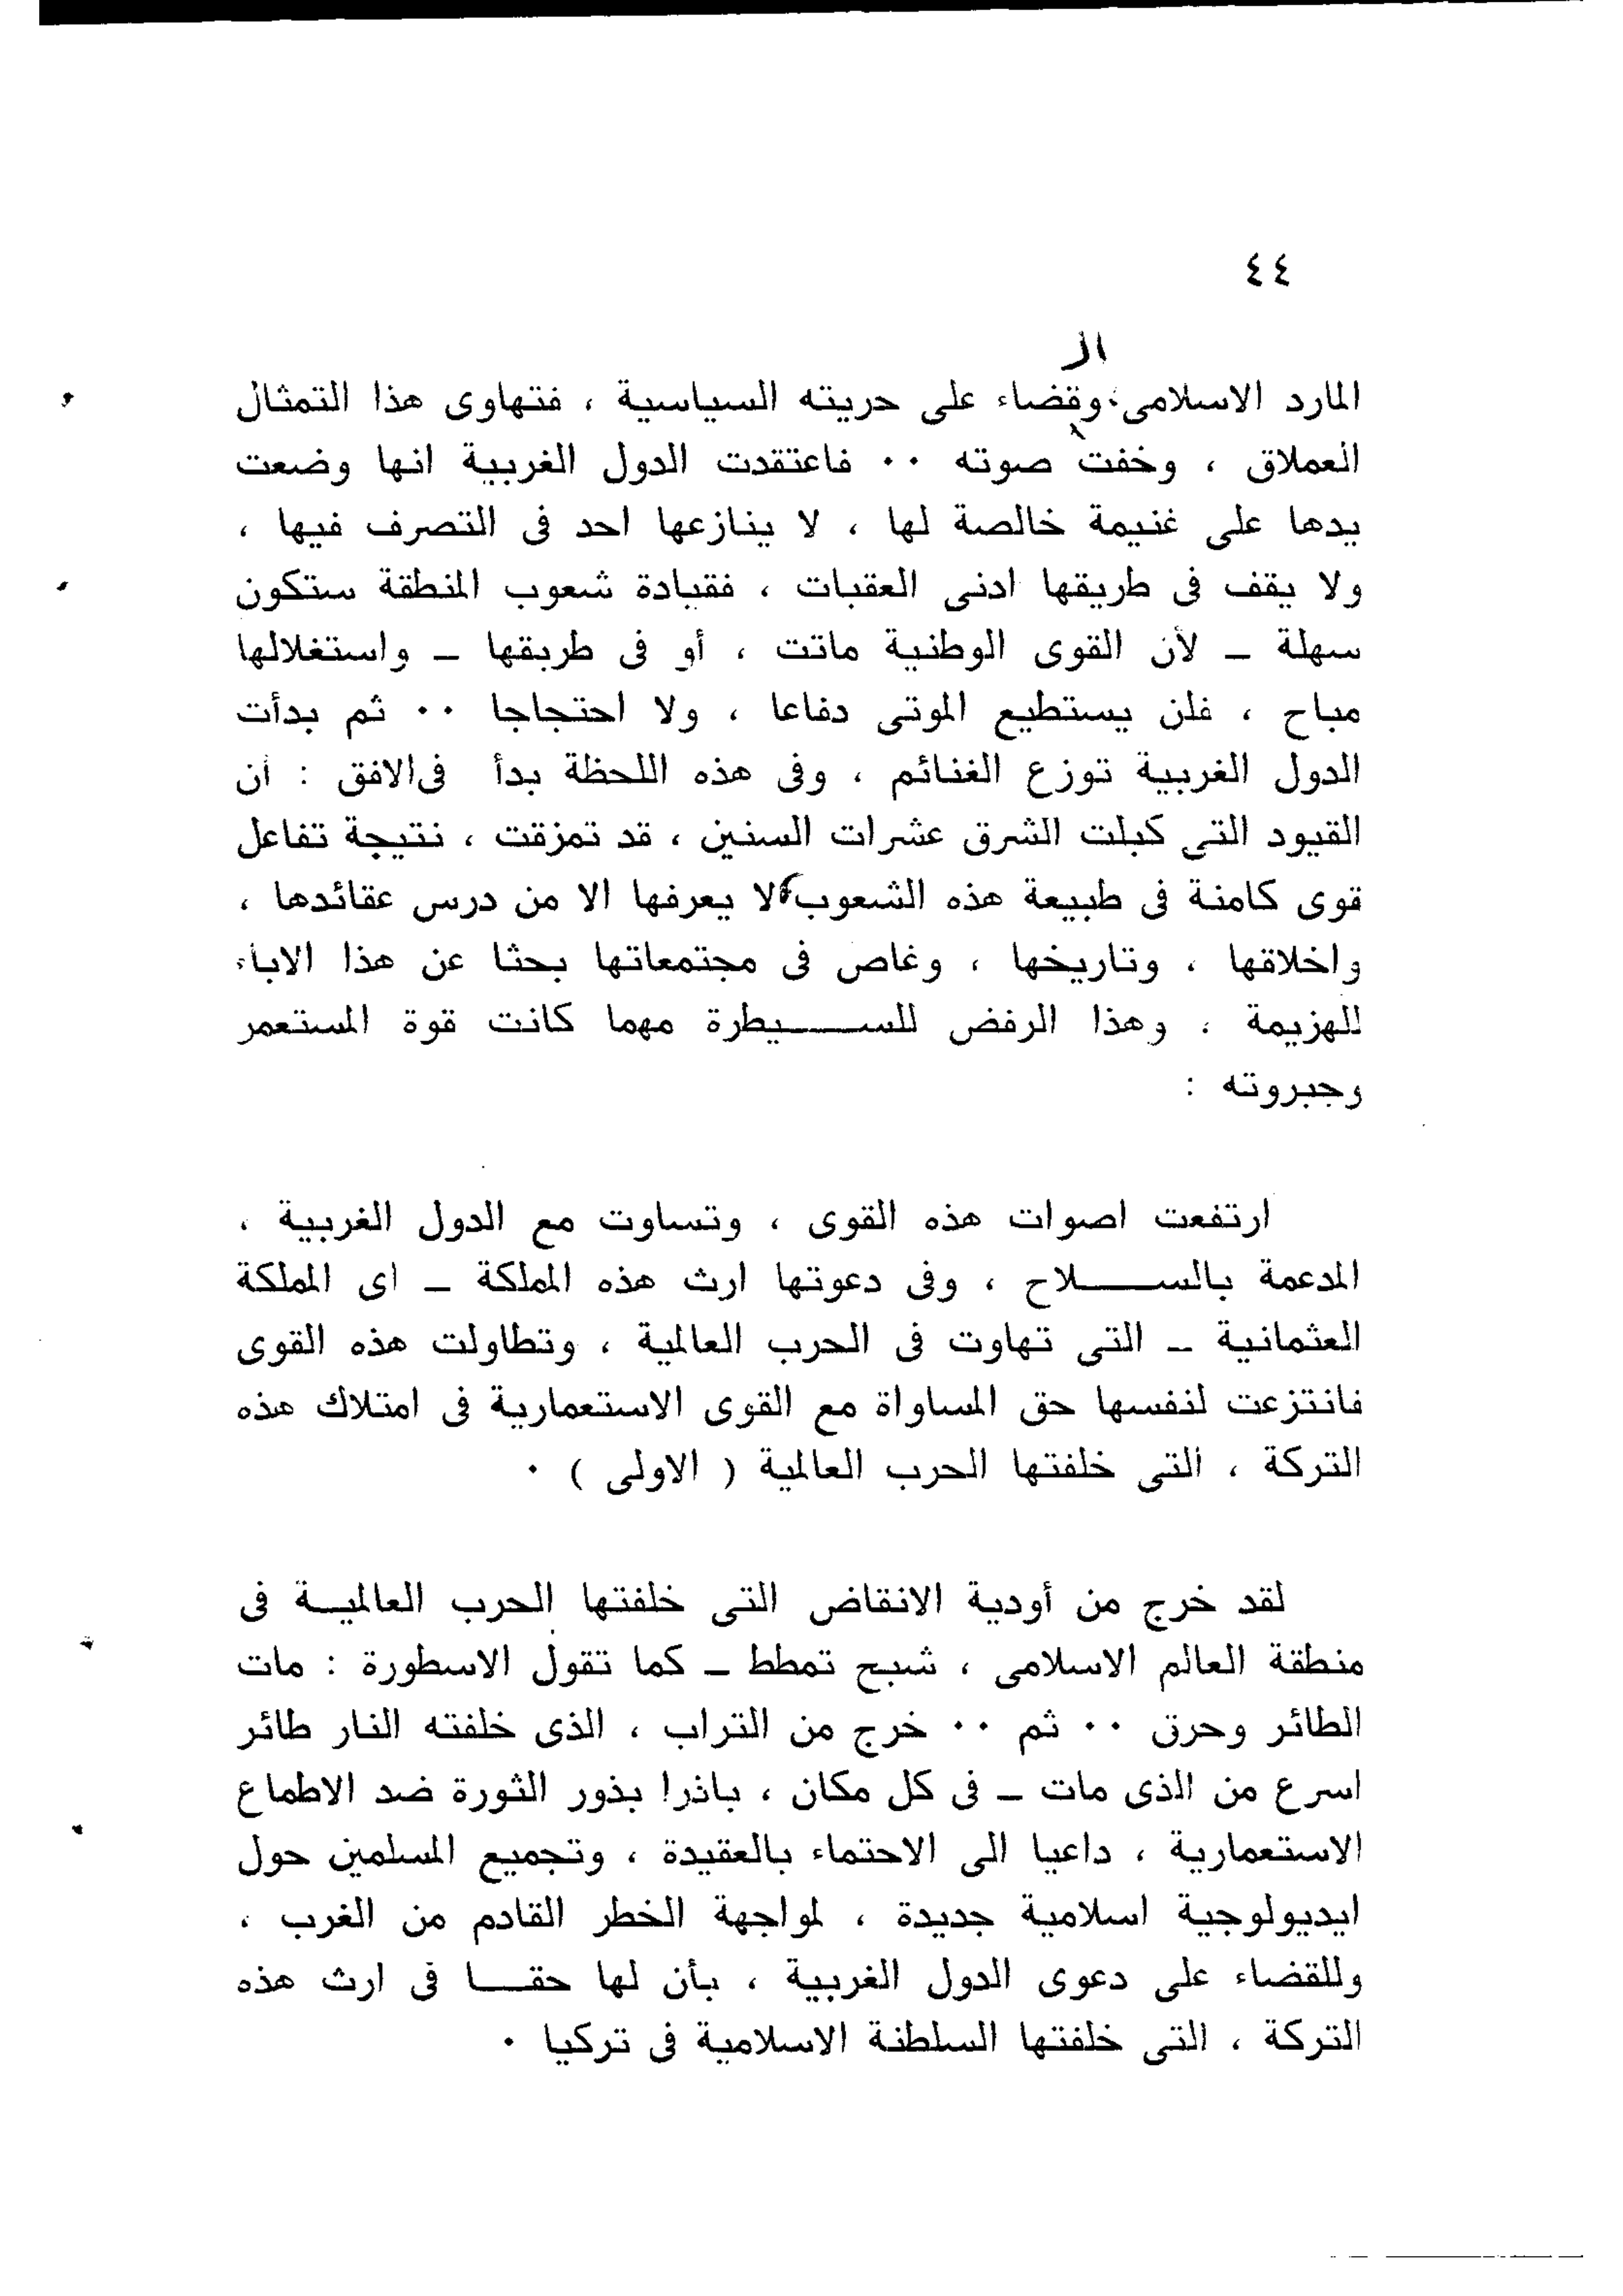 ٤٤
ال
المارد الاسلامى، وقضاء على حريته السياسية ، فتهاوى هذا التمثال
العملاق ، وخفت صوته ٠٠ فاعتقدت الدول الغربية انها وضعت
يدها على غنيمة خالصة لها ، لا ينازعها احد فى التصرف فيها ،
ولا يقف فى طريقها ادنى العقبات ، فقيادة شعوب المنطقة ستكون
سهلة ـ لأن القوى الوطنية ماتت ، أو فى طريقها ـ واستغلالها
مباح ، فلن يستطيع الموتى دفاعا ، ولا احتجاجا ٠٠ ثم بدأت
الدول الغربية توزع الغنائم ، وفى هذه اللحظة بدأ فى الافق : أن
القيود التى كبلت الشرق عشرات السنين ، قد تمزقت ، نتيجة تفاعل
قوى كامنة فى طبيعة هذه الشعوب، لا يعرفها الا من درس عقائدها ،
واخلاقها ، وتاريخها ، وغاص فى مجتمعاتها بحثا عن هذا الاباء
للهزيمة ، وهذا الرفض للســيطرة مهما كانت قوة المستعمر
وجبروته :
ارتفعت اصوات هذه القوى ، وتساوت مع الدول الغربية ،
المدعمة بالســلاح ، وفى دعوتها ارث هذه المملكة ـ اى المملكة
العثمانية ـ التى تهاوت فى الحرب العالمية ، وتطاولت هذه القوى
فانتزعت لنفسها حق المساواة مع القوى الاستعمارية فى امتلاك هذه
التركة ، التى خلفتها الحرب العالمية ( الاولى ) ٠
لقد خرج من أودية الانقاض التى خلفتها الحرب العالميــة فى
منطقة العالم الاسلامى ، شبح تمطط ـ كما تقول الاسطورة : مات
الطائر وحرق ٠٠ ثم ٠٠ خرج من التراب ، الذى خلفته النار طائر
اسرع من الذى مات ـ فى كل مكان ، باذرا بذور الثورة ضد الاطماع
الاستعمارية ، داعيا الى الاحتماء بالعقيدة ، وتجميع المسلمين حول
ايديولوجية اسلامية جديدة ، لمواجهة الخطر القادم من الغرب ،
وللقضاء على دعوى الدول الغربية ، بأن لها حقــا فى ارث هذه
التركة ، التى خلفتها السلطنة الاسلامية فى تركيا ٠